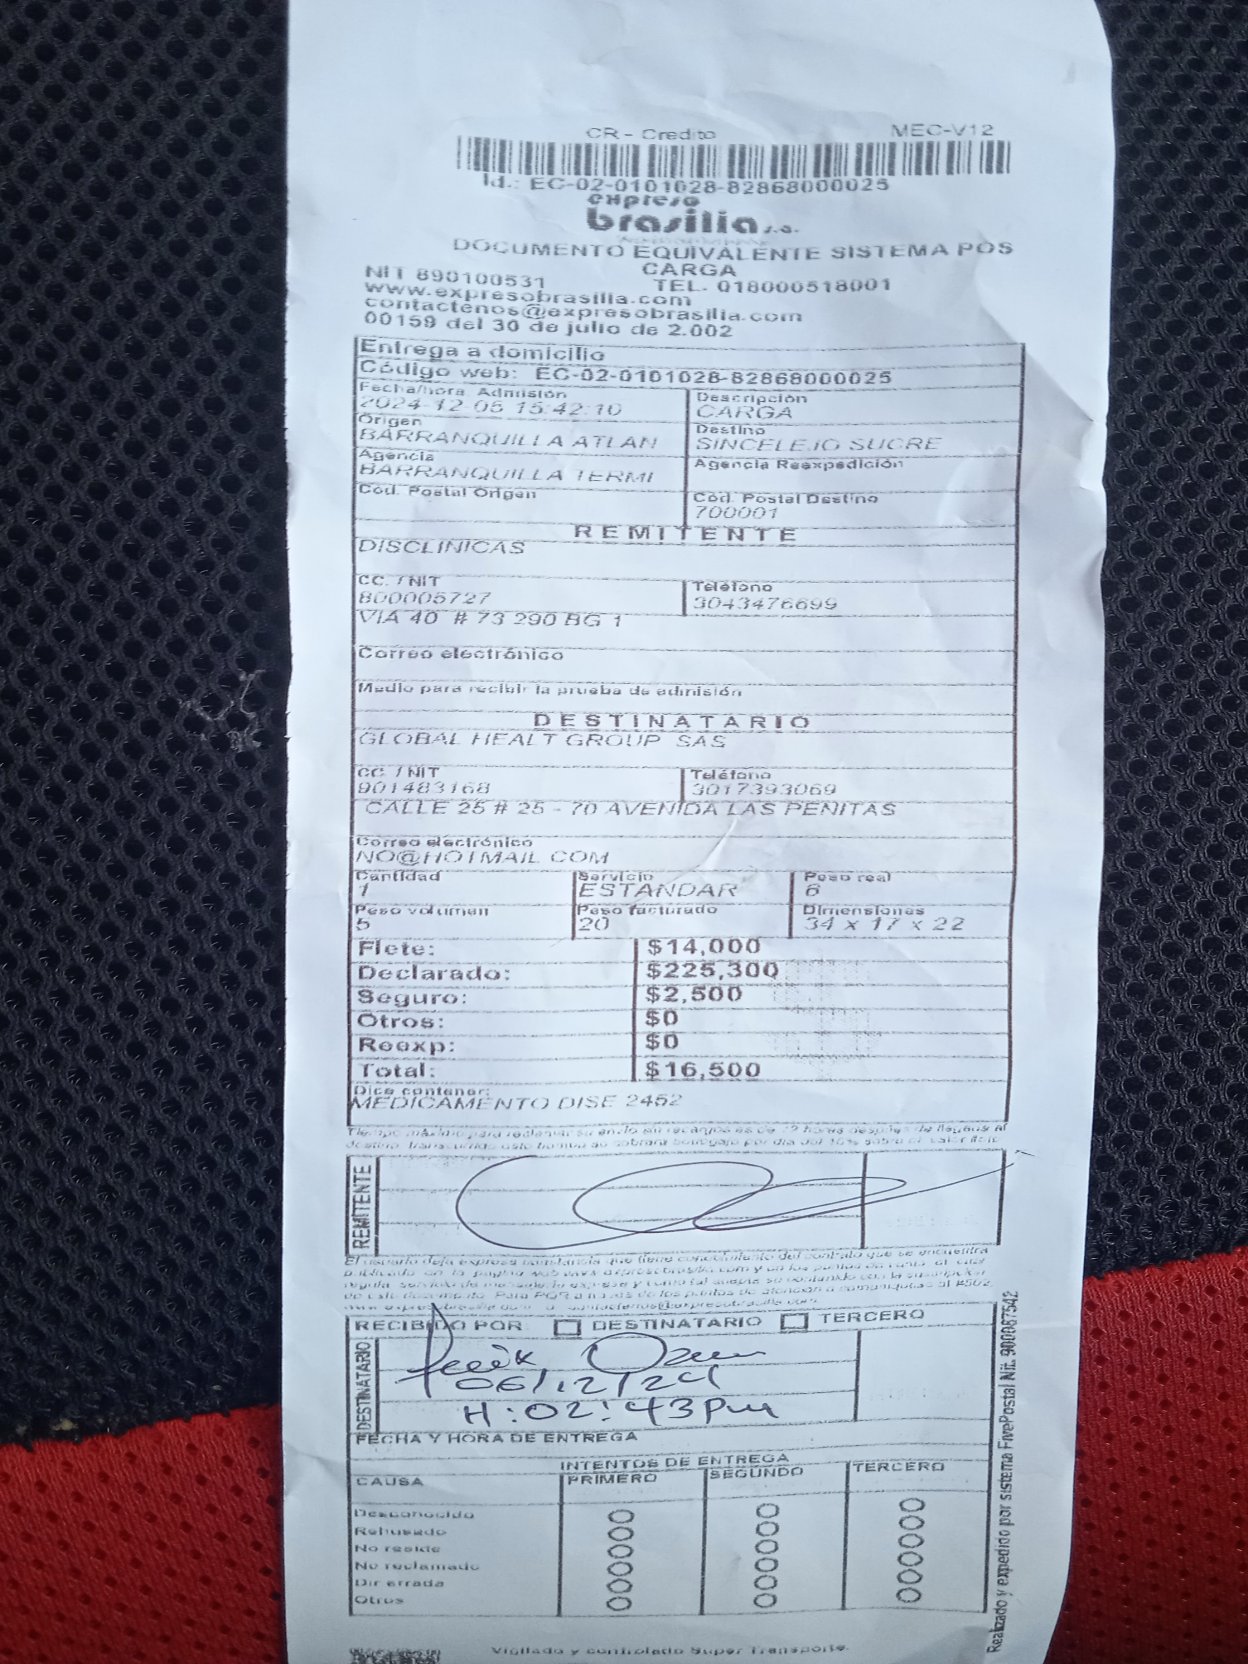 CR - Credito MEC-V12
Id.: EC-02-0101028-82868000025
expreso
brasilia s.a.
DOCUMENTO EQUIVALENTE SISTEMA POS
CARGA
NIT 890100531 TEL. 018000518001
www.expresobrasilia.com
contactenos@expresobrasilia.com
00159 del 30 de julio de 2.002
Entrega a domicilio
Código web: EC-02-0101028-82868000025
Fecha/hora Admisión Descripción
2024-12-05 15:42:10 CARGA
Origen Destino
BARRANQUILLA ATLAN SINCELEJO SUCRE
Agencia Agencia Reexpedición
BARRANQUILLA TERMI
Cod. Postal Origen Cód. Postal Destino
700001
REMITENTE
DISCLINICAS
CC. / NIT Teléfono
800005727 3043476699
VIA 40 # 73 290 BG 1
Correo electrónico
Medio para recibir la prueba de admisión
DESTINATARIO
GLOBAL HEALT GROUP SAS
CC. / NIT Teléfono
901483168 3017393069
CALLE 25 # 25 - 70 AVENIDA LAS PENITAS
Correo electrónico
NO@HOTMAIL.COM
Cantidad Servicio Peso real
1 ESTANDAR 6
Peso volumen Peso facturado Dimensiones
5 20 34 x 17 x 22
Flete: $14,000
Declarado: $225,300
Seguro: $2,500
Otros: $0
Reexp: $0
Total: $16,500
Dice contener:
MEDICAMENTO DISE 2452
REMITENTE
RECIBIDO POR DESTINATARIO TERCERO
DESTINATARIO
06/12/24
H:02:43Pm
FECHA Y HORA DE ENTREGA
INTENTOS DE ENTREGA
CAUSA PRIMERO SEGUNDO TERCERO
Desconocido
Rehusado
No reside
No reclamado
Dir errada
Otros
Realizado y expedido por sistema FivePostal Nit. 900087542
Vigilado y controlado Super Transporte.